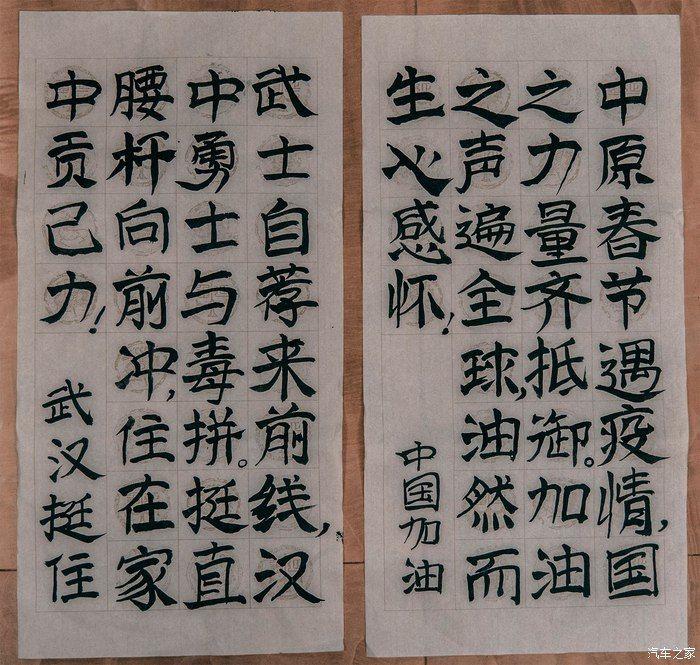 中原春节遇疫情,国
之力量齐抵御。加油
之声遍全球,油然而
生心感怀!
中国加油
武士自荐来前线,汉
中勇士与毒拼。挺直
腰杆向前冲,住在家
中贡己力!
武汉挺住
汽车之家